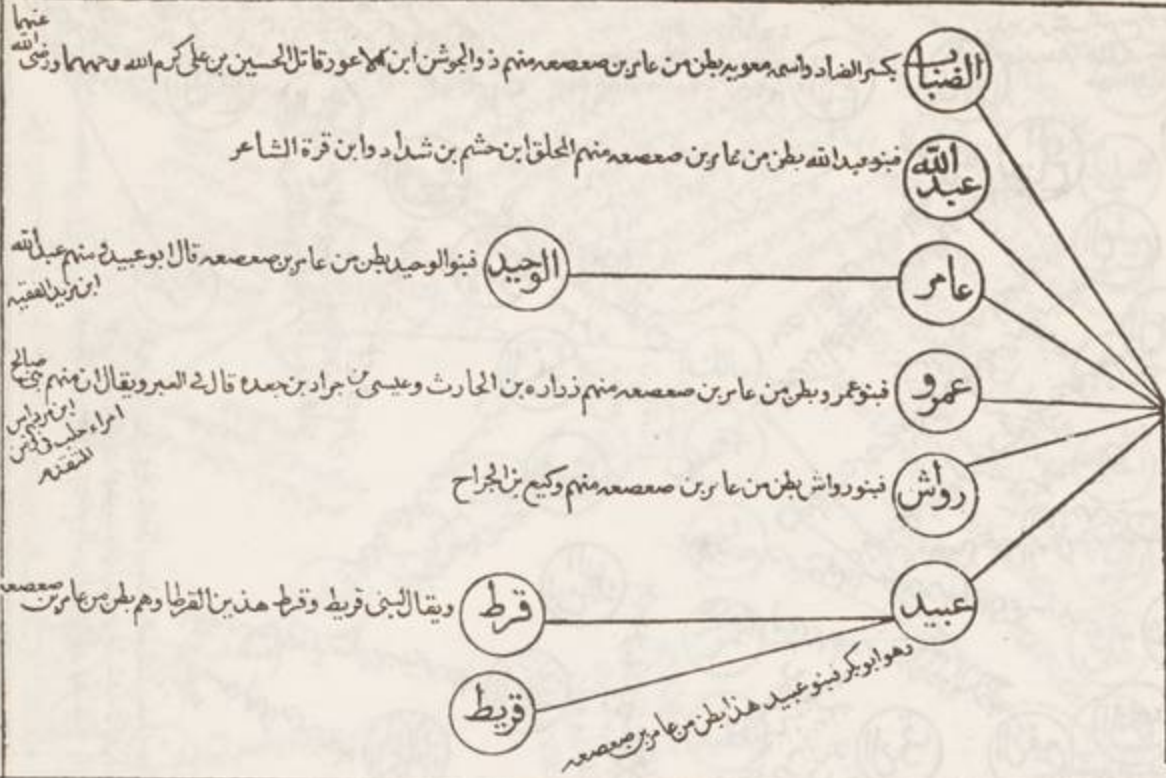 الضباب
بكسر الضاد واسمه معويه بطن من عامر بن صعصعه منهم ذو الجوشن ابن الاعور قاتل الحسين بن علي كرم الله وجههما ورضى الله عنهما
عبد الله
فبنو عبد الله بطن من عامر بن صعصعه منهم المحلق ابن حشم بن شداد وابن قرة الشاعر
عامر
الوحيد
فبنو الوحيد بطن من عامر بن صعصعه قال ابو عبيد ومنهم عبد الله
ابن يزيد الفقيه
عمرو
فبنو عمرو بطن من عامر بن صعصعه منهم زراره بن الحارث وعيسى بن جراد بن جعده قال في العبر ويقال ان منهم بني صالح
ابن مرداس
امراء حلب في
رواش
فبنو رواش بطن من عامر بن صعصعه منهم وكيع بن الجراح
عبيد
قرط
ويقال لبنى قريط وقرط هذين القرطا وهم بطن من عامر بن صعصعه
قريط
وهو ابو بكر فبنو عبيد هذا بطن من عامر بن صعصعه